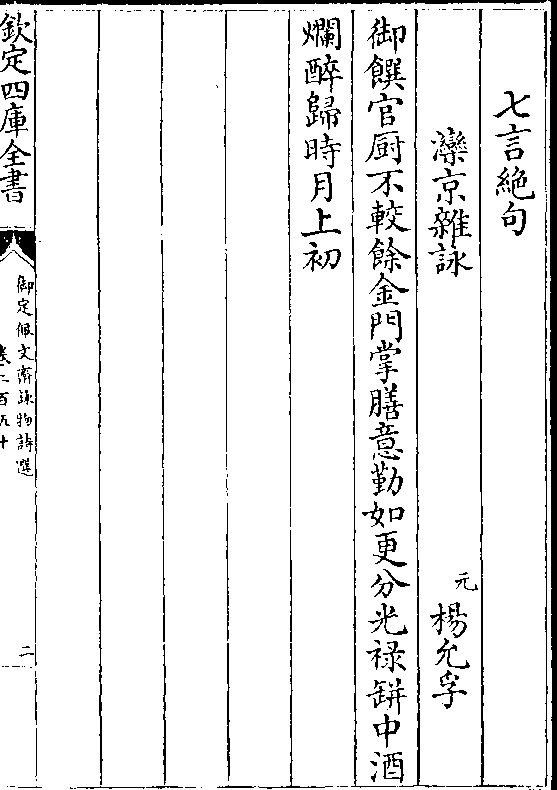 七言絶句
灤京雜詠
元
楊允孚
御饌官厨不較餘金門掌膳意勤如更分光禄缾中酒
爛醉歸時月上初
欽定四庫全書
御定佩文齋詠物詩選
卷二百五十
二